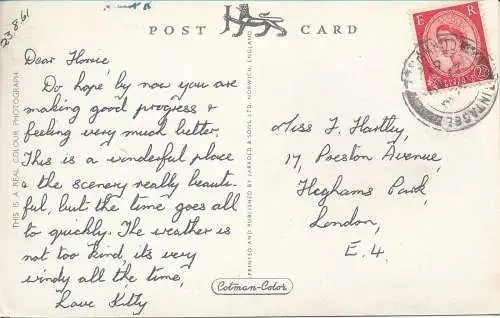 23.8.61
POST CARD
Dear Florrie
Do hope by now you are
making good progress &
feeling very much better.
This is a wonderful place
& the scenery really beauti-
ful, but the time goes all
to quickly. The weather is
not too kind, its very
windy all the time,
Love Kitty
THIS IS A REAL COLOUR PHOTOGRAPH
PRINTED AND PUBLISHED BY JARROLD & SONS LTD. NORWICH, ENGLAND
Cotman-Color
E R
TINTAGEL
Miss F. Hartley,
17, Preston Avenue,
Heghams Park,
London,
E.4.